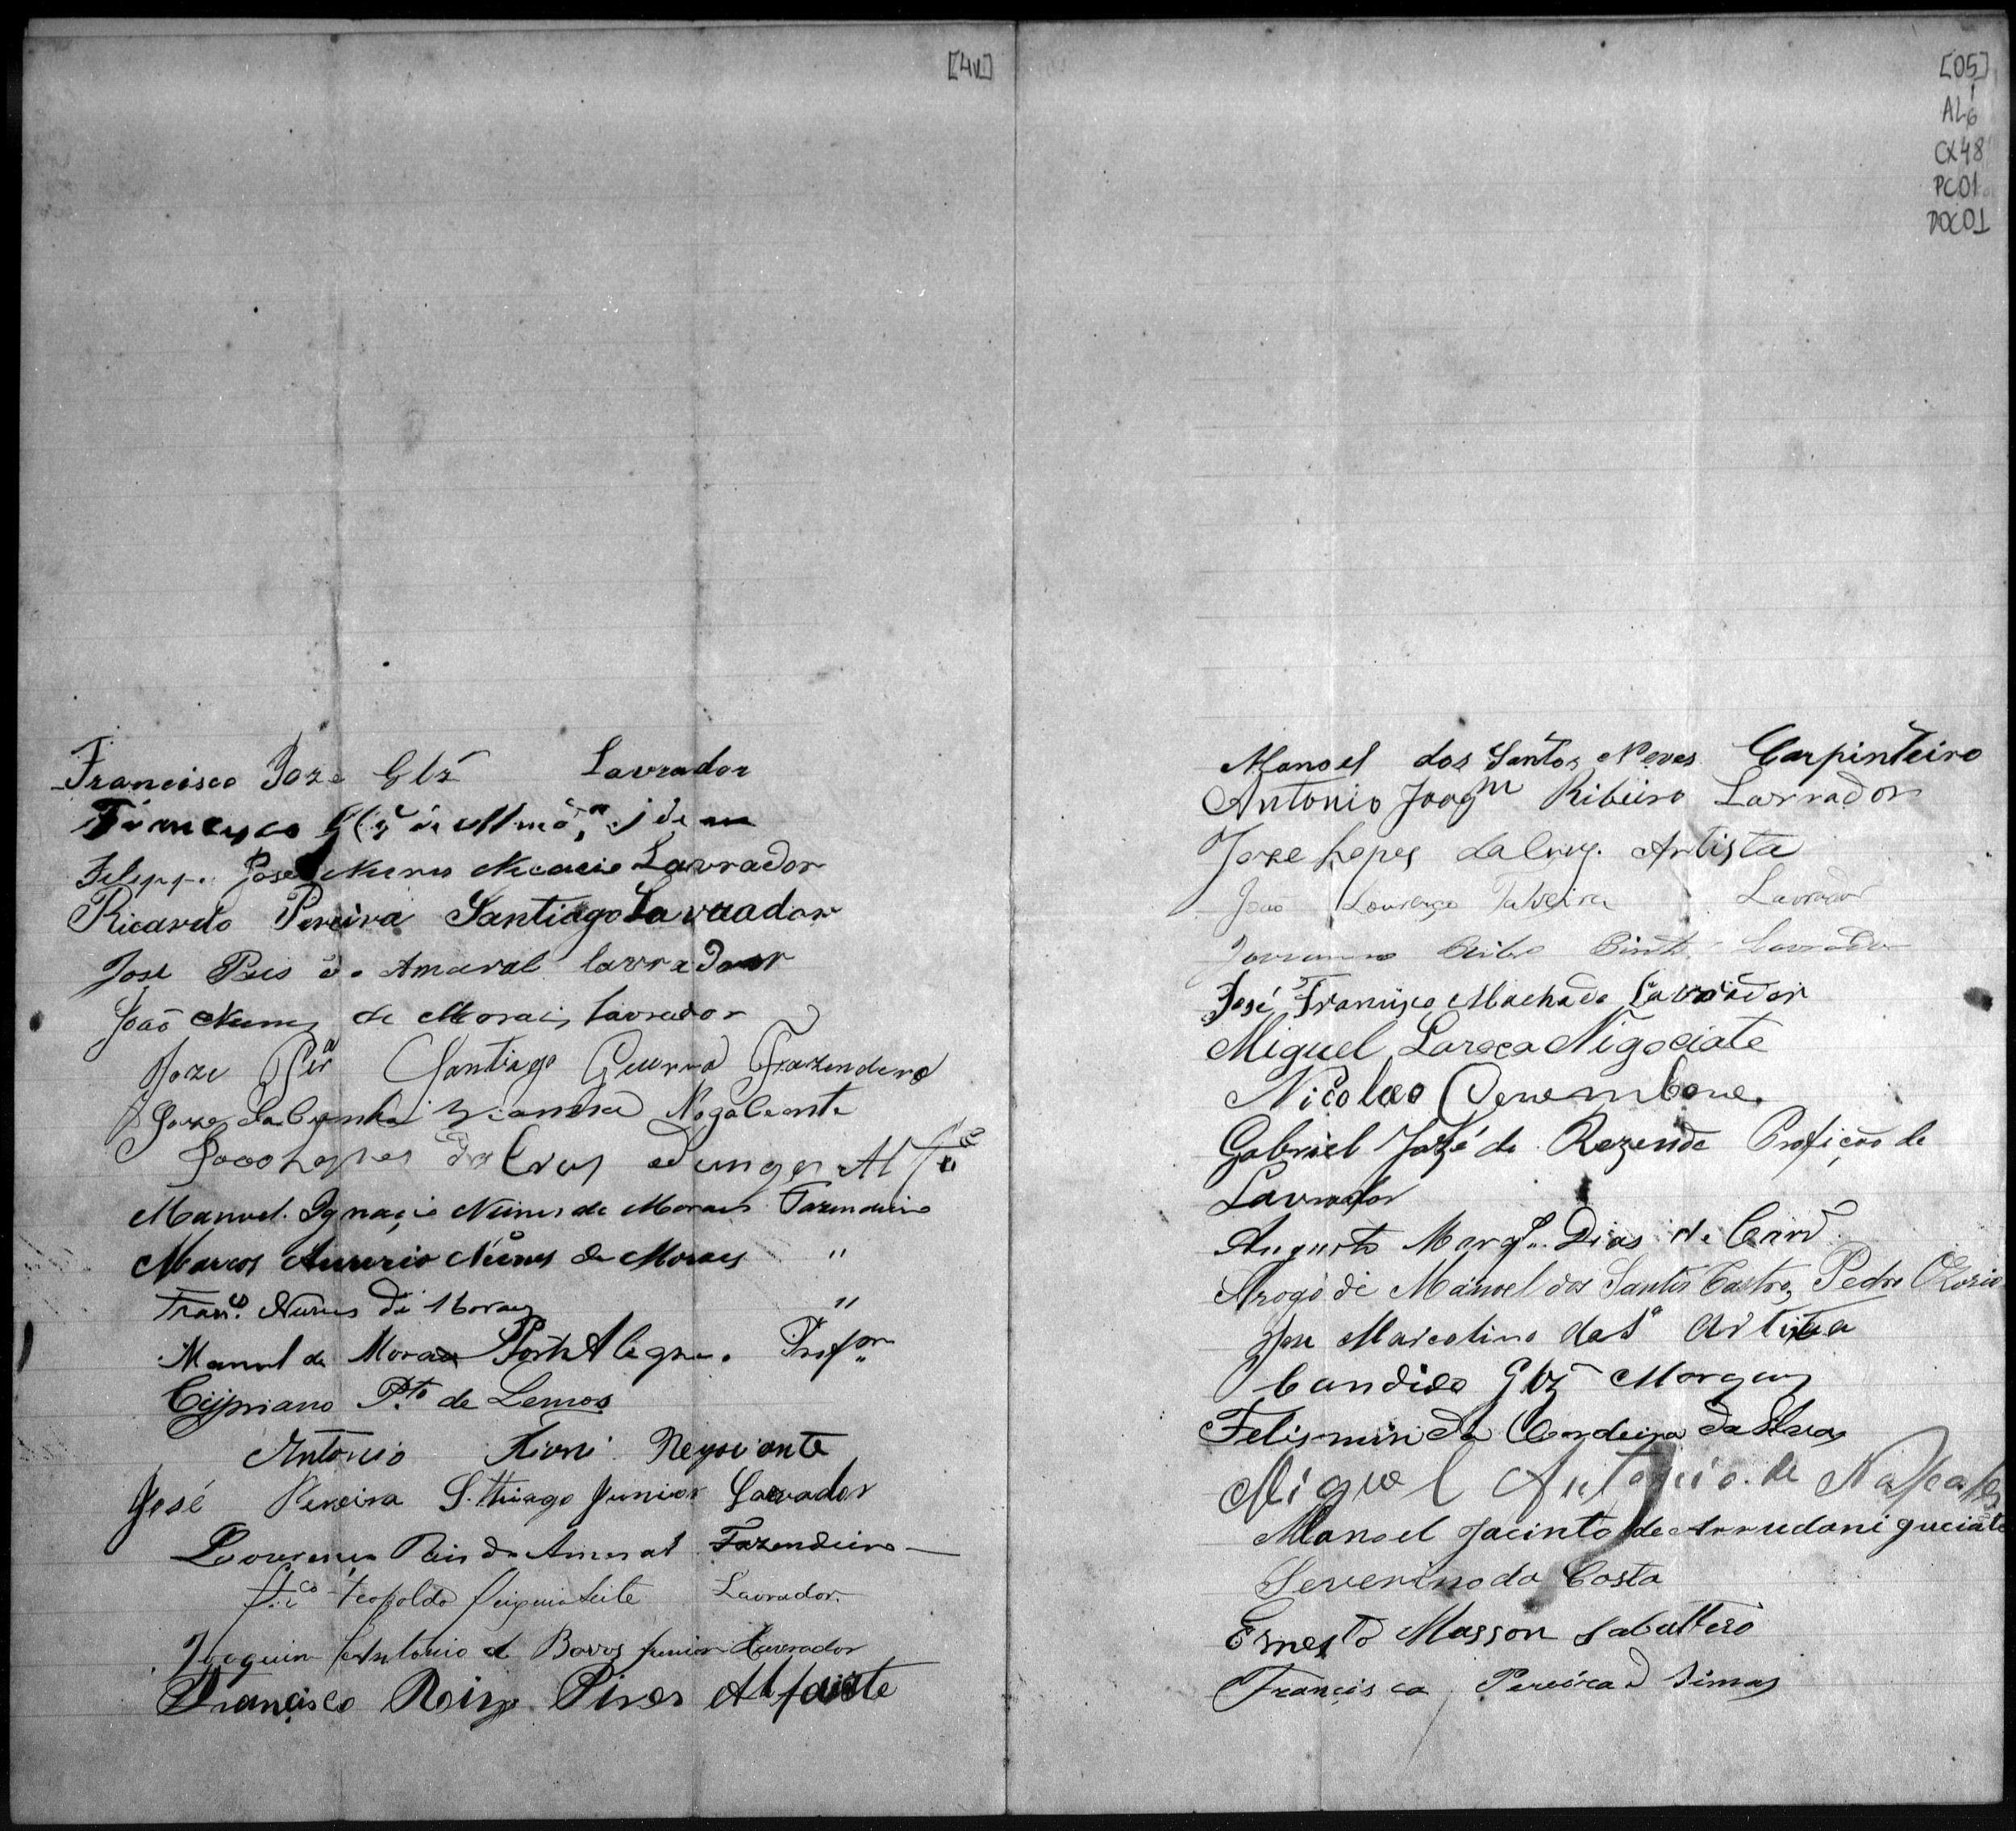 [4v]
Francisco Joze Glz Lavrador
idem
Felipp. José Nunes Nicacio Lavrador
Ricardo Pereira Santiago Lavrador
José Pais do Amaral lavrador
João Nunes de Morais, lavrador
Joze Pera Santiago Guerra Fazendero
Joze da Cunha Vianna
Joao Lopes da Cruz
Manuel. Ignaçio Nunes de Moraes Fazendeiro
Marcos Aurerio Nunes de Moraes "
Franco. Nunes di Moraes "
Manuel de Moraes Porto Alegre. Profor
Cypriano Pto de Lemos
Antonio Fioni Negociante
José Pereira S. Thiago Junior Lavrador
Lourenço Pais do Amaral Fazendeiro
Leopoldo Leite Lavrador.
Joaquim Antonio de Barros Junior Lavrador
Francisco Roiz Pires Alfaiate
[05]
AL6
CX48
PC01
DOC01
Manoel dos Santos Neves Carpinteiro
Antonio Joaqm Ribeiro Lavrador
Joze Lopes da Cruz. Artista
João Lourenço Talveira Lavrador
Pinto Lavrador
José Francisco Machado Lavrador
Miguel Laroca Nigociate
Nicolao
Gabriel Jozé de Rezende Profição de
Lavrador
Augusto Marqs. Dias de
Arogo de Manoel dos Santos Castro, Pedro Ozorio
Marcolino da Sa Artista
Candido Glz Morgan
Felisminda Cordeiro da Silva
Miguel Antonio de
Manoel Jacinto de Arruda niguciate
Severino da Costa
Ernesto Masson Sabattero
Francisca Pereira d Simas